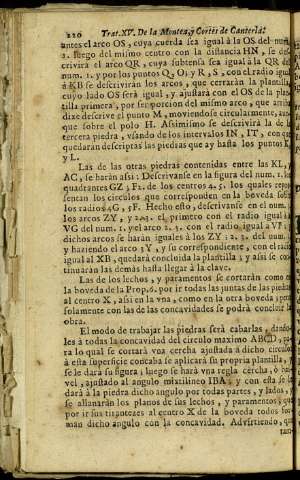 220 Trat.XV. De la Montea, y Cortes de Canteria.
antes el arco OS, cuya cuerda sea igual à la OS del num.
2. luego del mismo centro con la distancia HN, se des-
crivirà el arco QR, cuya subtensa sea igual à la QR del
num. 1. y por los puntos Q, O; y R, S, con el radio igual
à KB se descriviràn los arcos, que cerràràn la plantilla,
cuyo lado OS serà igual, y ajustarà con el OS de la plan-
tilla primera, por ser porcion del mismo arco, que arriba
dixe descrive el punto M, moviendose circularmente, aun-
que sobre el polo H. Assimismo se descrivirà la de la
tercera piedra, usando de los intervalos IN, IT, con que
quedaràn descriptas las piedras que ay hasta los puntos K,
y L.
Las de las otras piedras contenidas entre las KL, y
AC, se haràn assi: Descrivanse en la figura del num. 1. los
quadrantes GZ, F2. de los centros 4. 5. los quales repre-
sentan los circulos que corresponden en la boveda sobre
los radios 4G, 5F. Hecho esto, descrivanse en el num. 3.
los arcos ZY, y 2.3. el primero con el radio igual à
VG del num. 1. y el arco 2. 3. con el radio igual à VF; y
dichos arcos se haràn iguales à los ZY; 2. 3. del num. 1.
y haziendo el arco 3Y, y su correspondiente, con el radio
igual al XB, quedarà concluida la plantilla; y assi se con-
tinuaràn las demàs hasta llegar à la clave.
Las de los lechos, y paramentos se cortaràn como en
la boveda de la Prop.6. por ir todas las juntas de las piedras
al centro X, assi en la una, como en la otra boveda; pero
solamente con las de las concavidades se podrà concluir la
obra.
El modo de trabajar las piedras serà cabarlas, dando-
les à todas la concavidad del circulo maximo ABCD, pa-
ra lo qual se cortarà una cercha ajustada à dicho circulo:
à esta superficie concaba se aplicarà su propria plantilla, y
se le darà su figura; luego se harà una regla cercha, ò bai-
vel, ajustado al angulo mixtilineo IBA; y con esta se le
darà à la piedra dicho angulo por todas partes, y lados, y
se allanaràn los planos de sus lechos, y paramentos; que
por ir sus tiranteces al centro X de la boveda todos for-
man dicho angulo con la concavidad. Advirtiendo, que
tam-